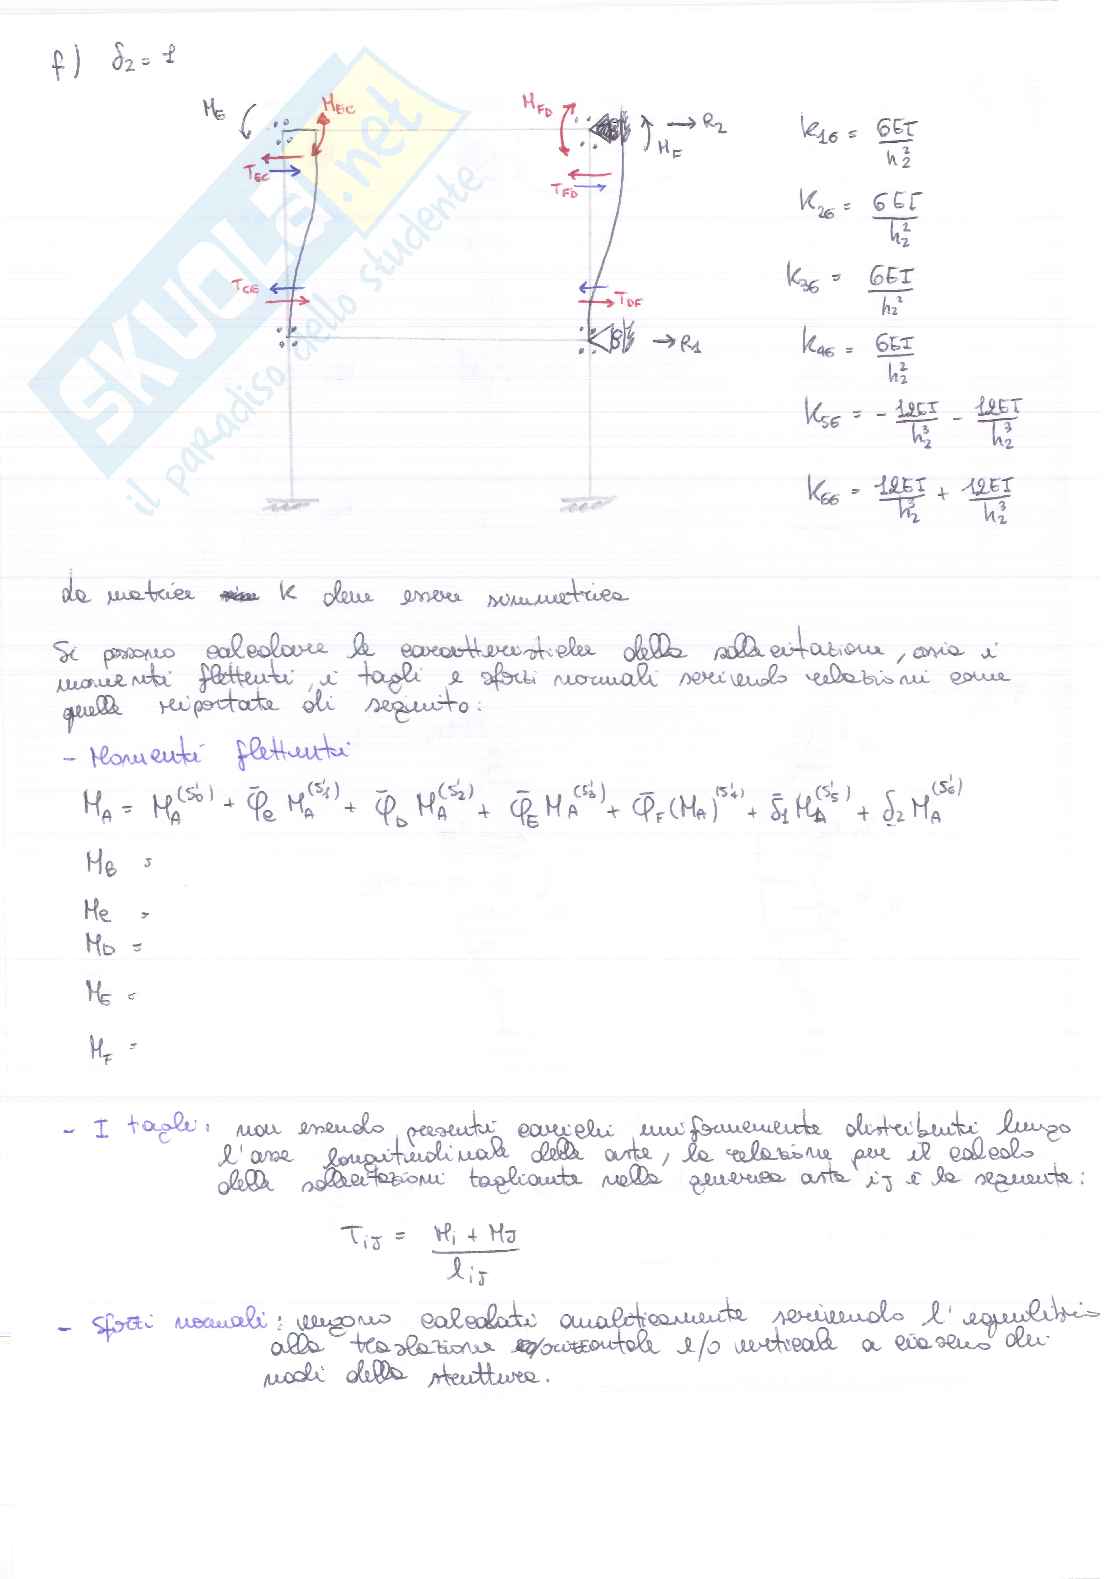 f) δ₂ = 1
M_E
M_EC
T_EC
T_CE
M_FD
R₂
M_F
T_FD
T_DF
R₁
K₁₆ = 6EI / h₂²
K₂₆ = 6EI / h₂²
K₃₆ = 6EI / h₂²
K₄₆ = 6EI / h₂²
K₅₆ = - 12EI / h₂³ - 12EI / h₂³
K₆₆ = 12EI / h₂³ + 12EI / h₂³
SKUOLA.net
il paradiso dello studente
La matrice K deve essere simmetrica
Si possono calcolare le caratteristiche della sollecitazione, ossia i
momenti flettenti, i tagli e sforzi normali scrivendo relazioni come
quelle riportate di seguito:
- Momenti flettenti
M_A = M_A^(S'₀) + φ̄_C M_A^(S'₁) + φ̄_D M_A^(S'₂) + φ̄_E M_A^(S'₃) + φ̄_F (M_A)^(S'₄) + δ̄₁ M_A^(S'₅) + δ₂ M_A^(S'₆)
M_B =
M_C =
M_D =
M_E =
M_F =
- I tagli: non essendo presenti carichi uniformemente distribuiti lungo
l'asse longitudinale delle aste, la relazione per il calcolo
delle sollecitazioni tagliante nella generica asta iJ è la seguente:
T_iJ = M_i + M_J / l_iJ
- Sforzi normali: vengono calcolati analiticamente scrivendo l'equilibrio
alla traslazione orizzontale e/o verticale a ciascuno dei
nodi della struttura.